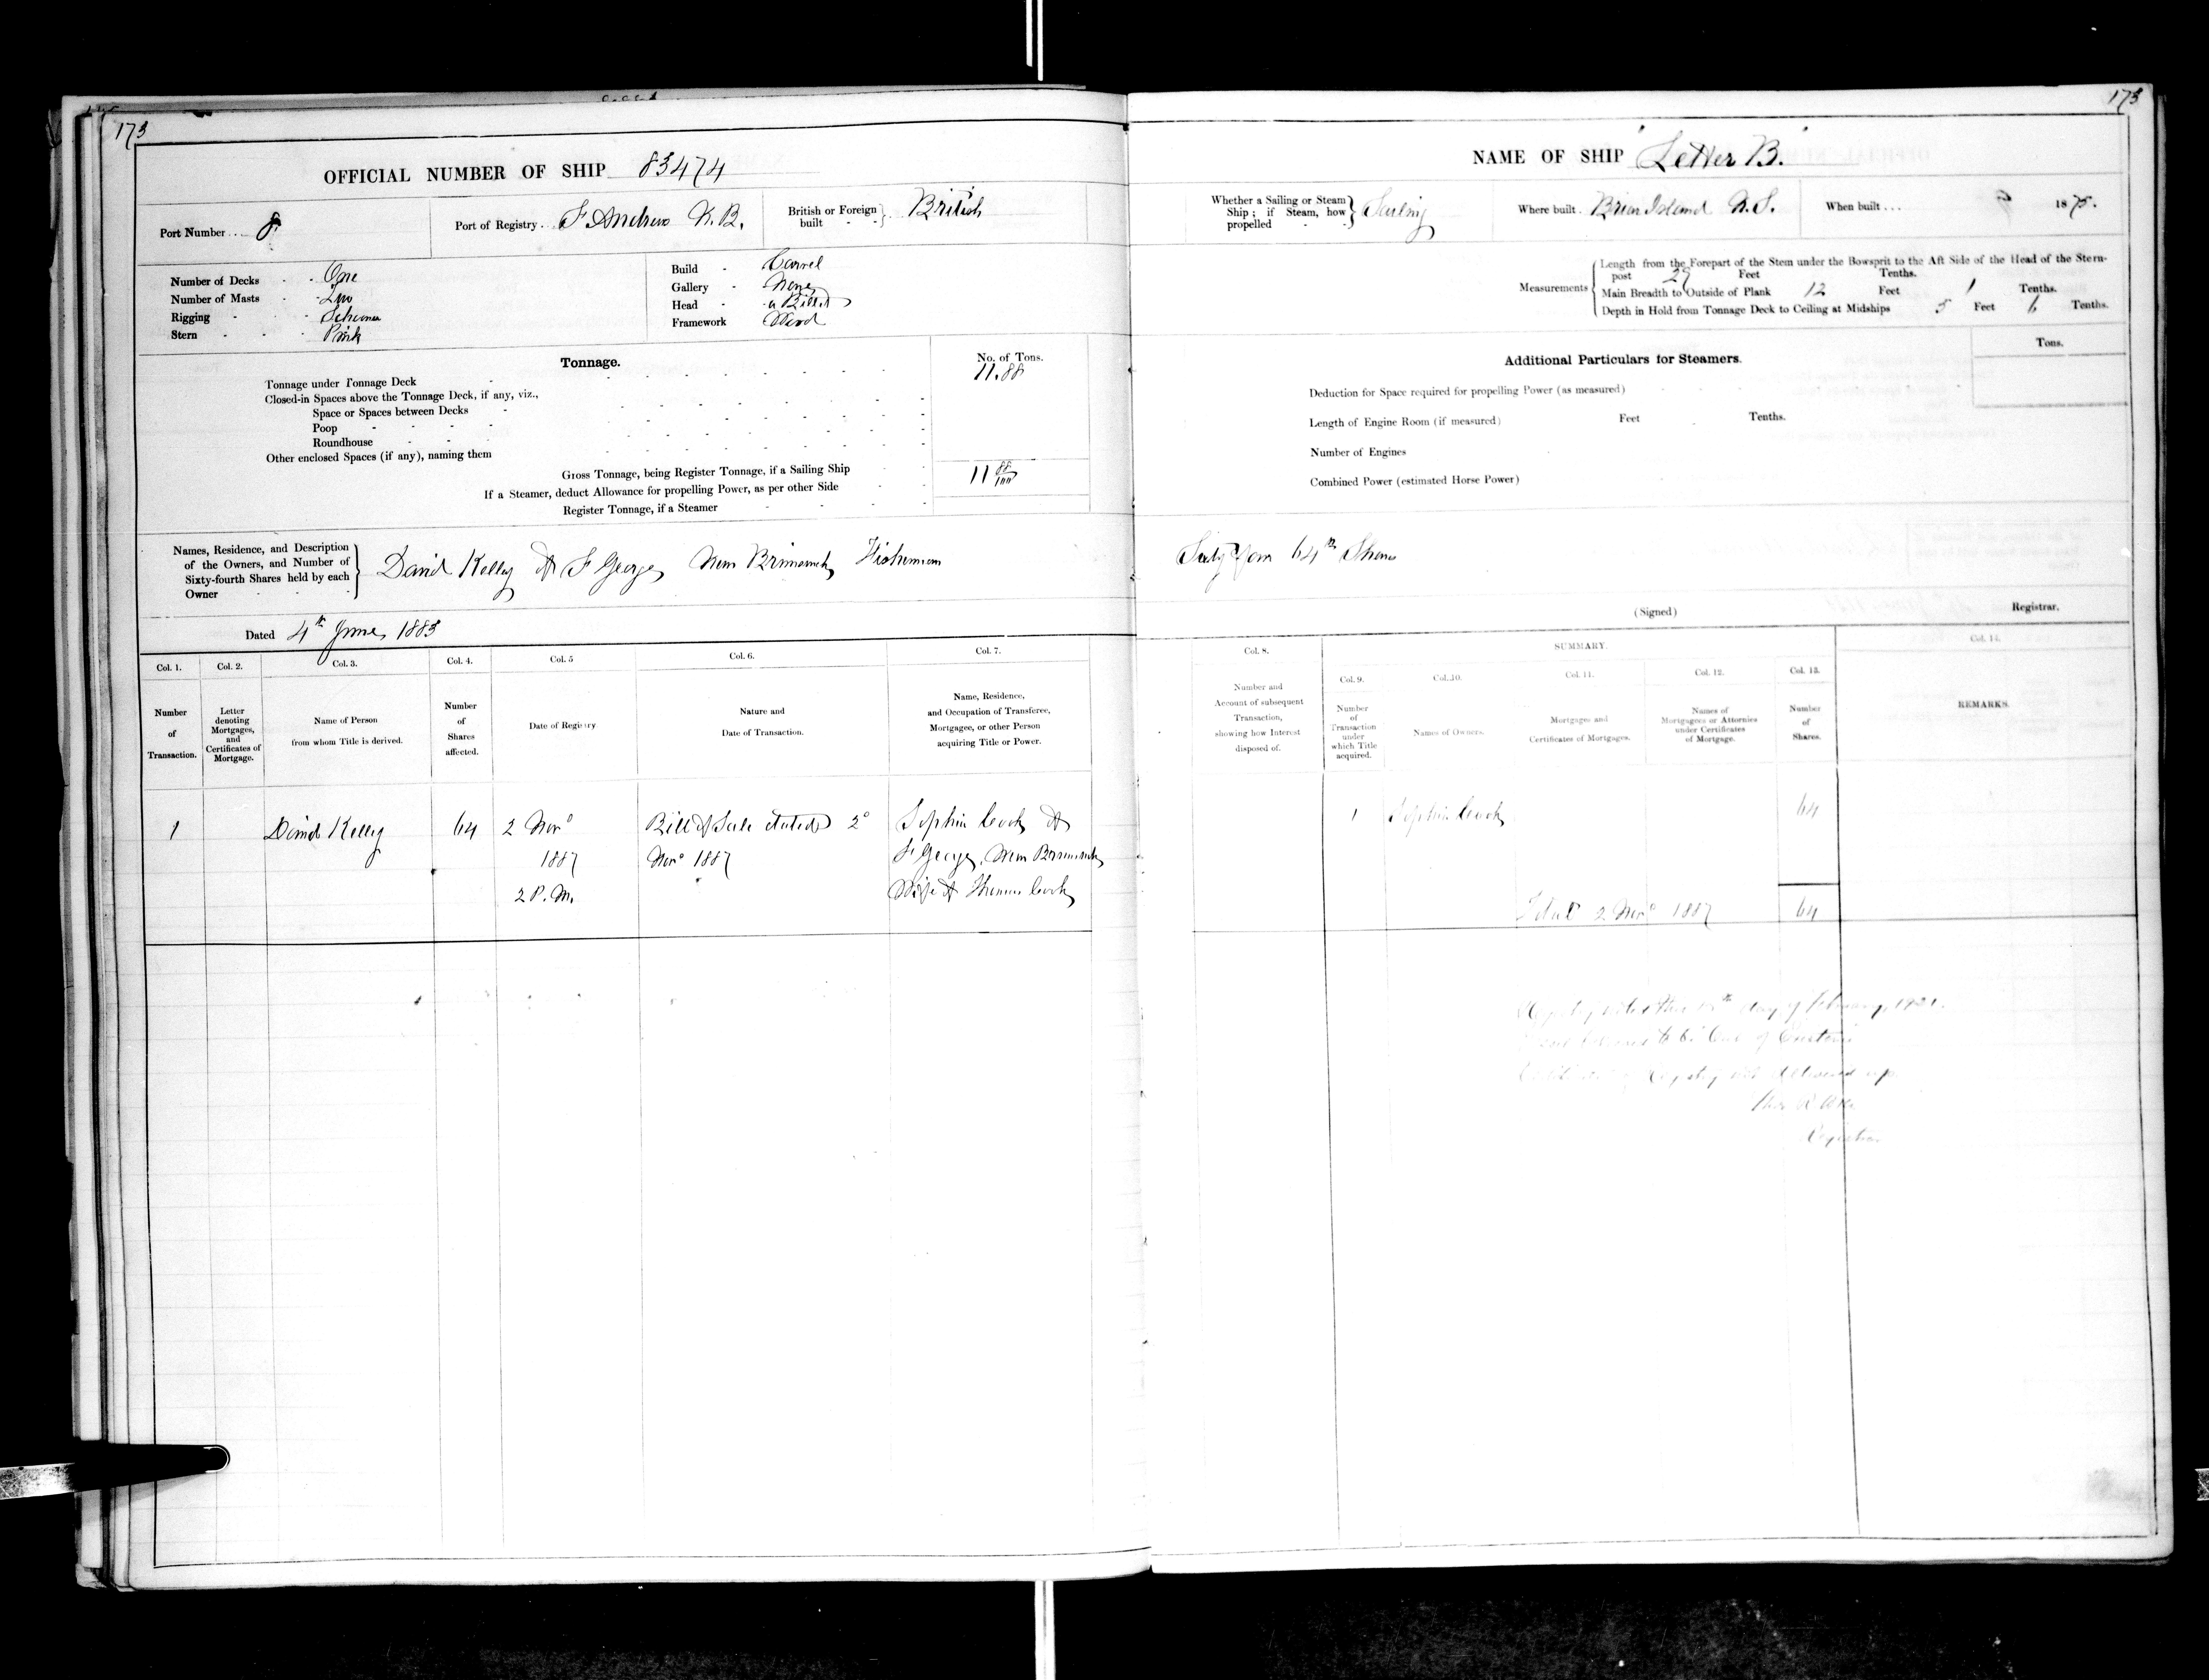 173
OFFICIAL NUMBER OF SHIP 83474
Port Number ... 8.
Port of Registry .. St Andrews N.B.
British or Foreign built } British
Number of Decks - One
Number of Masts - Two
Rigging - Schooner
Stern - Pink
Build - Carvel
Gallery - None
Head - a Billet
Framework Wood
Tonnage.
No. of Tons.
Tonnage under Tonnage Deck 11.88
Closed-in Spaces above the Tonnage Deck, if any, viz.,
Space or Spaces between Decks
Poop
Roundhouse
Other enclosed Spaces (if any), naming them
Gross Tonnage, being Register Tonnage, if a Sailing Ship 11 88/100
If a Steamer, deduct Allowance for propelling Power, as per other Side
Register Tonnage, if a Steamer
Names, Residence, and Description
of the Owners, and Number of
Sixty-fourth Shares held by each
Owner
David Kelley of St George, New Brunswick, Fisherman
Dated 4th June, 1883
Col. 1. Col. 2. Col. 3. Col. 4. Col. 5 Col. 6. Col. 7.
Number of Transaction.
Letter denoting Mortgages, and Certificates of Mortgage.
Name of Person from whom Title is derived.
Number of Shares affected.
Date of Registry
Nature and Date of Transaction.
Name, Residence, and Occupation of Transferee, Mortgagee, or other Person acquiring Title or Power.
1 David Kelley 64 2 Novr 1887 2 P.M.
Bill of Sale dated 2d
Novr 1887
Sophia Cook of
St George, New Brunswick
Wife of Thomas Cook
173
NAME OF SHIP "Letter B."
Whether a Sailing or Steam Ship; if Steam, how propelled } Sailing
Where built . Briar Island N.S.
When built ... 1875.
Measurements
Length from the Forepart of the Stem under the Bowsprit to the Aft Side of the Head of the Stern-
post 29 Feet Tenths.
Main Breadth to Outside of Plank 12 Feet 1 Tenths.
Depth in Hold from Tonnage Deck to Ceiling at Midships 5 Feet 6 Tenths.
Additional Particulars for Steamers.
Tons.
Deduction for Space required for propelling Power (as measured)
Length of Engine Room (if measured) Feet Tenths.
Number of Engines
Combined Power (estimated Horse Power)
Sixty four 64th Shares
(Signed) Registrar.
SUMMARY.
Col. 8. Col. 9. Col. 10. Col. 11. Col. 12. Col. 13. Col. 14.
Number and Account of subsequent Transaction, showing how Interest disposed of.
Number of Transaction under which Title acquired.
Names of Owners.
Mortgages and Certificates of Mortgages.
Names of Mortgagees or Attornies under Certificates of Mortgage.
Number of Shares.
REMARKS.
1 Sophia Cook 64
Total 2 Novr 1887 64
Registry day of February, 1921.
of Customs
Registry not delivered up.
Registrar